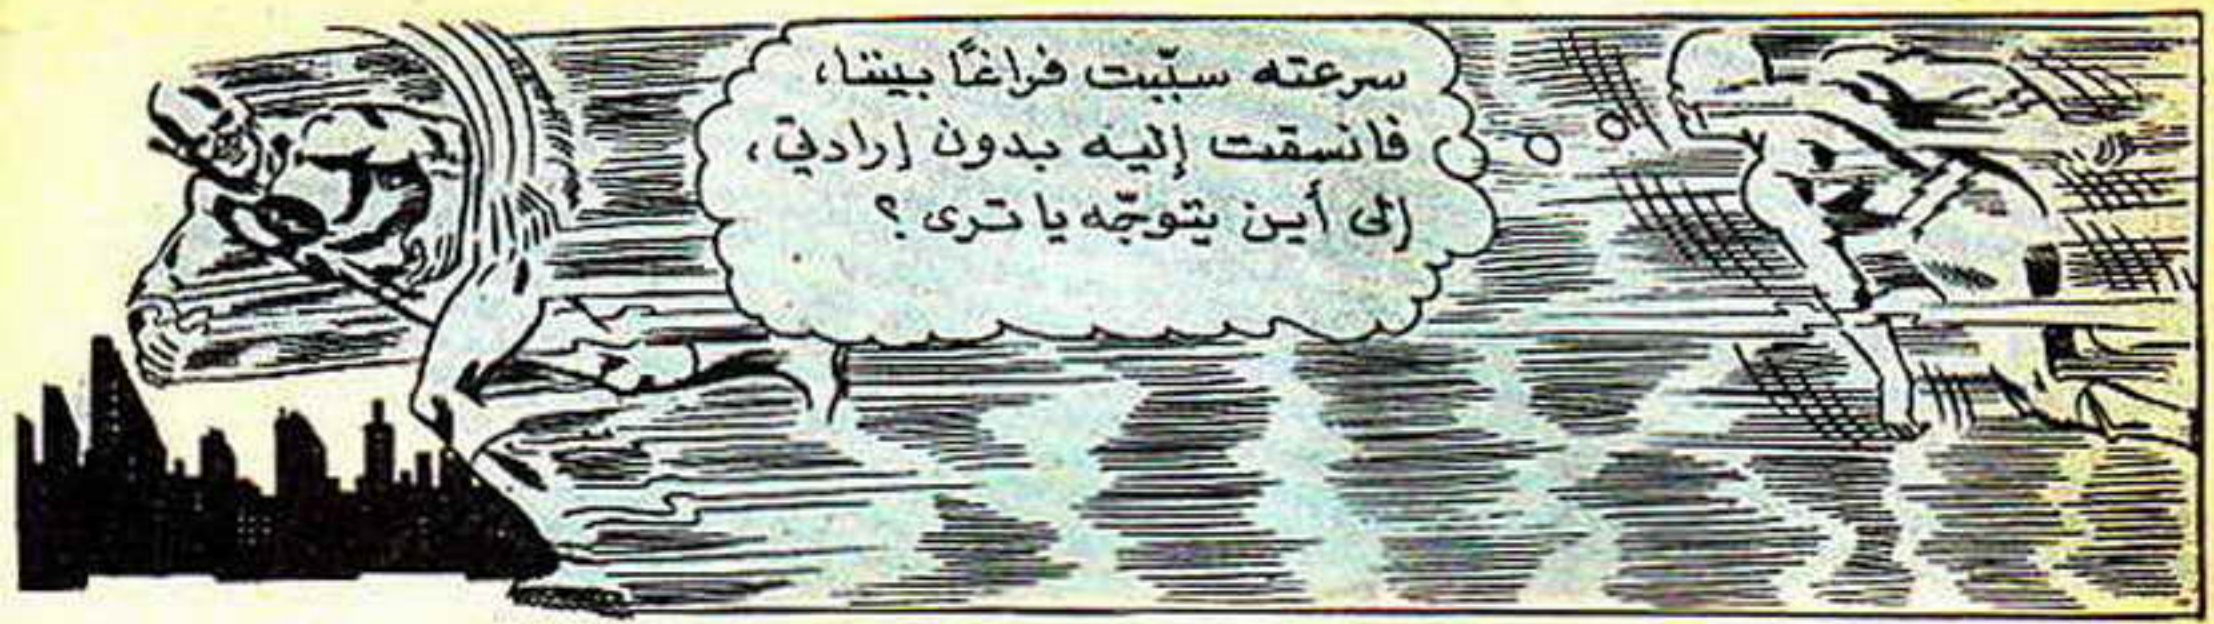 سرعته سبّبت فراغًا بيننا،
فانسقت إليه بدون إرادتي،
إلى أين يتوجّه يا ترى؟